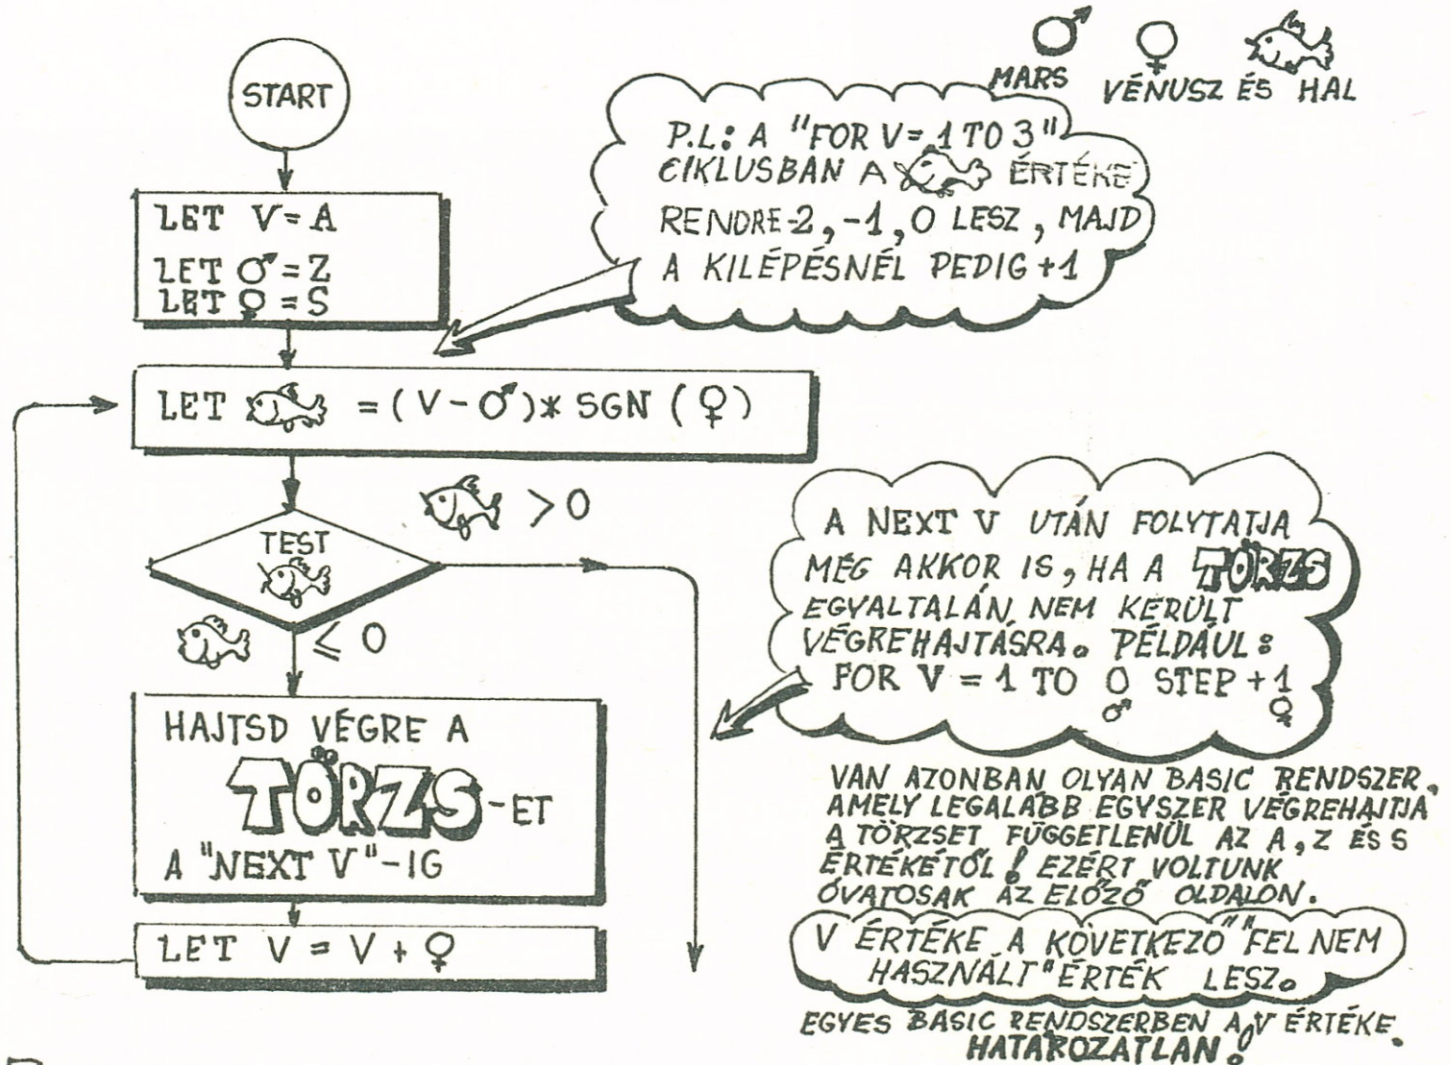 ♂ ♀
MARS VÉNUSZ ÉS HAL
START
P.L.: A "FOR V = 1 TO 3"
CIKLUSBAN A ÉRTÉKE
RENDRE -2, -1, 0 LESZ, MAJD
A KILÉPÉSNÉL PEDIG +1
LET V = A
LET ♂ = Z
LET ♀ = S
LET = (V - ♂) * SGN (♀)
> 0
TEST
≤ 0
A NEXT V UTÁN FOLYTATJA
MÉG AKKOR IS, HA A TÖRZS
EGYALTALÁN NEM KERÜLT
VÉGREHAJTÁSRA. PÉLDÁUL:
FOR V = 1 TO 0 STEP + 1
♂ ♀
HAJTSD VÉGRE A
TÖRZS-ET
A "NEXT V"-IG
LET V = V + ♀
VAN AZONBAN OLYAN BASIC RENDSZER,
AMELY LEGALÁBB EGYSZER VÉGREHAJTJA
A TÖRZSET FÜGGETLENÜL AZ A, Z ÉS S
ÉRTÉKÉTŐL! EZÉRT VOLTUNK
ÓVATOSAK AZ ELŐZŐ OLDALON.
V ÉRTÉKE A KÖVETKEZŐ "FEL NEM
HASZNÁLT" ÉRTÉK LESZ.
EGYES BASIC RENDSZERBEN A V ÉRTÉKE
HATÁROZATLAN!